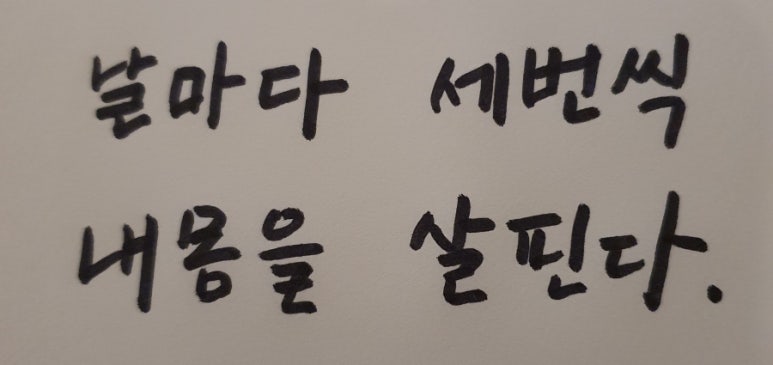 날마다 세번씩
내몸을 살핀다.